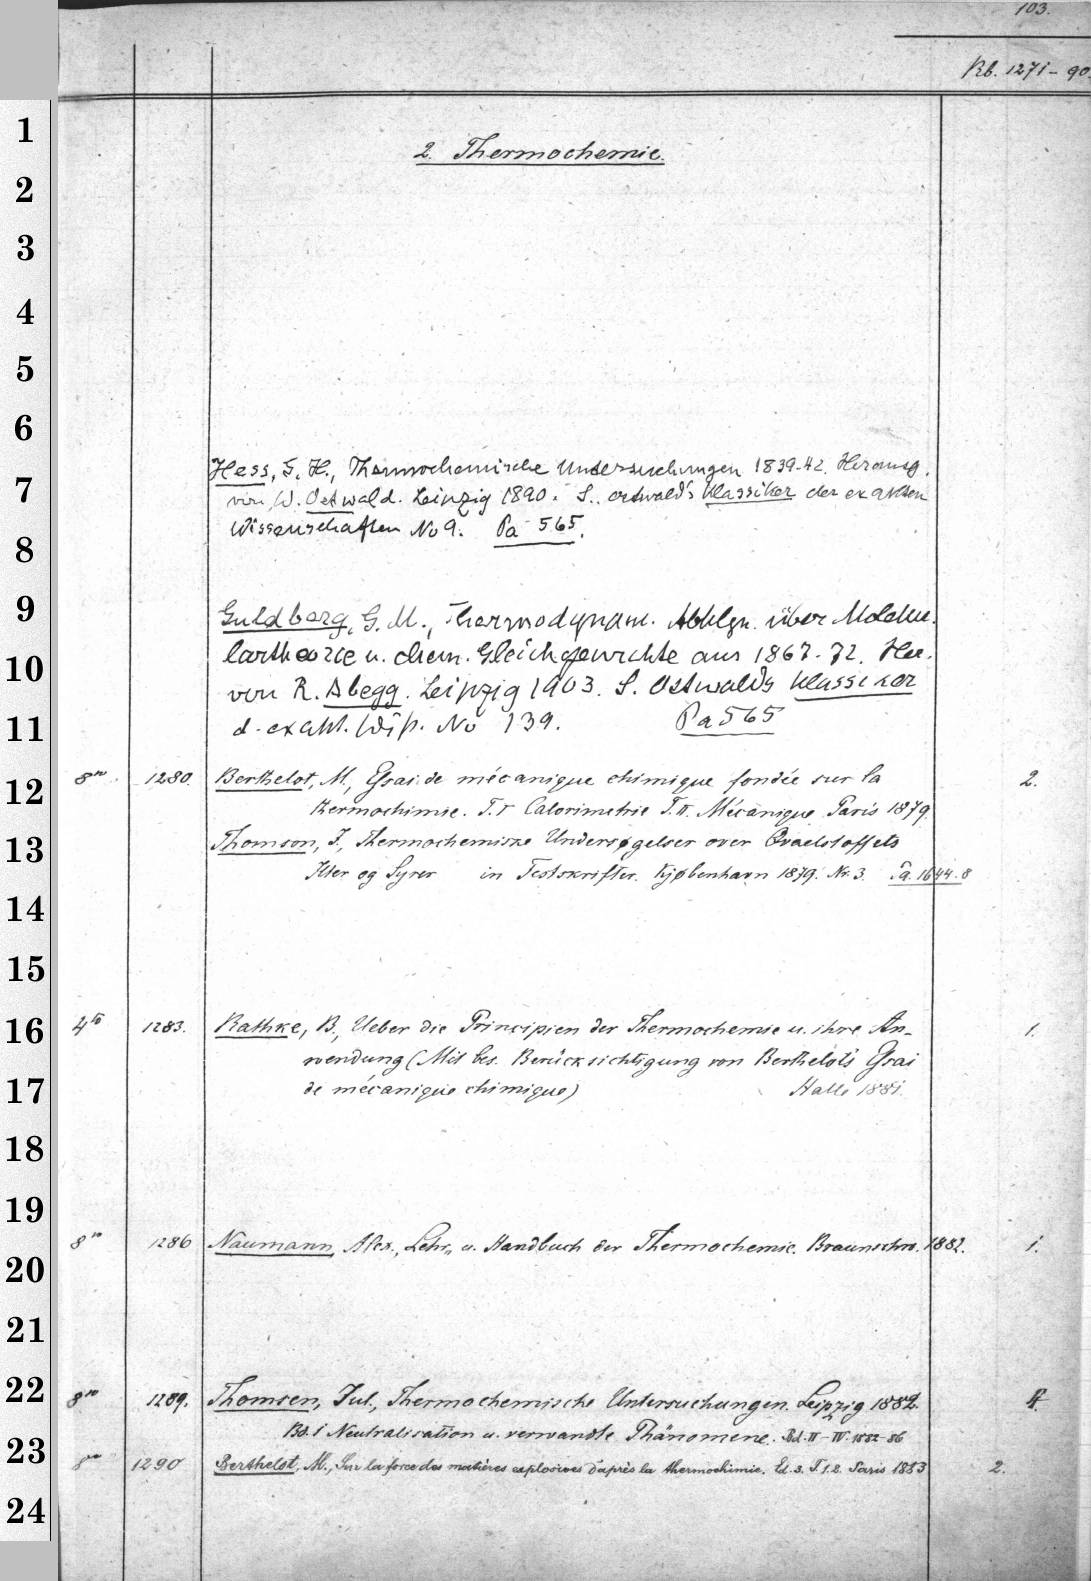 103.
Rb. 1271-90.
2. Thermochemie.
Hess, G. H., Thermochemische Untersuchungen 1839-42. Herausg.
von W. Ostwald. Leipzig 1890. S. ostwald's Klassiker der exakten
Wissenschaften No 9. Pa 565.
Guldberg, G. M., Thermodynam. Abhlgn. über Moleku-
lartheorie u. chem. Gleichgewichte aus 1867-72. Her.
von R. Abegg. Leipzig 1903. S. Ostwalds Klassiker
d. exakt. Wiss. No 139. Pa 565
8vo. 1280. Berthelot, M., Essai de mécanique chimique fondée sur la 2.
thermochimie. T.I Calorimetrie T.II. Mécanique Paris 1879.
Thomson, J., Thermochemiske Undersøgelser over Qvaelstoffets
Ilter og Syrer in Festskrifter. Kjøbenhavn 1879. Nr. 3. Pa. 1644.8
4to 1283. Rathke, B., Ueber die Principien der Thermochemie u. ihre An- 1.
wendung (Mit bes. Berücksichtigung von Berthelot's Essai
de mécanique chimique) Halle 1881.
8vo 1286 Naumann, Alex., Lehr- u. Handbuch der Thermochemie. Braunschw. 1882. 1.
8vo 1289. Thomsen, Jul., Thermochemische Untersuchungen. Leipzig 1882. 4.
Bd. I Neutralisation u. verwandte Phänomene. Bd. II-IV. 1882-86
8vo 1290 Berthelot, M., Sur la force des matières explosives d'après la thermochimie. Ed. 3. T. 1.2. Paris 1883 2.
1
2
3
4
5
6
7
8
9
10
11
12
13
14
15
16
17
18
19
20
21
22
23
24